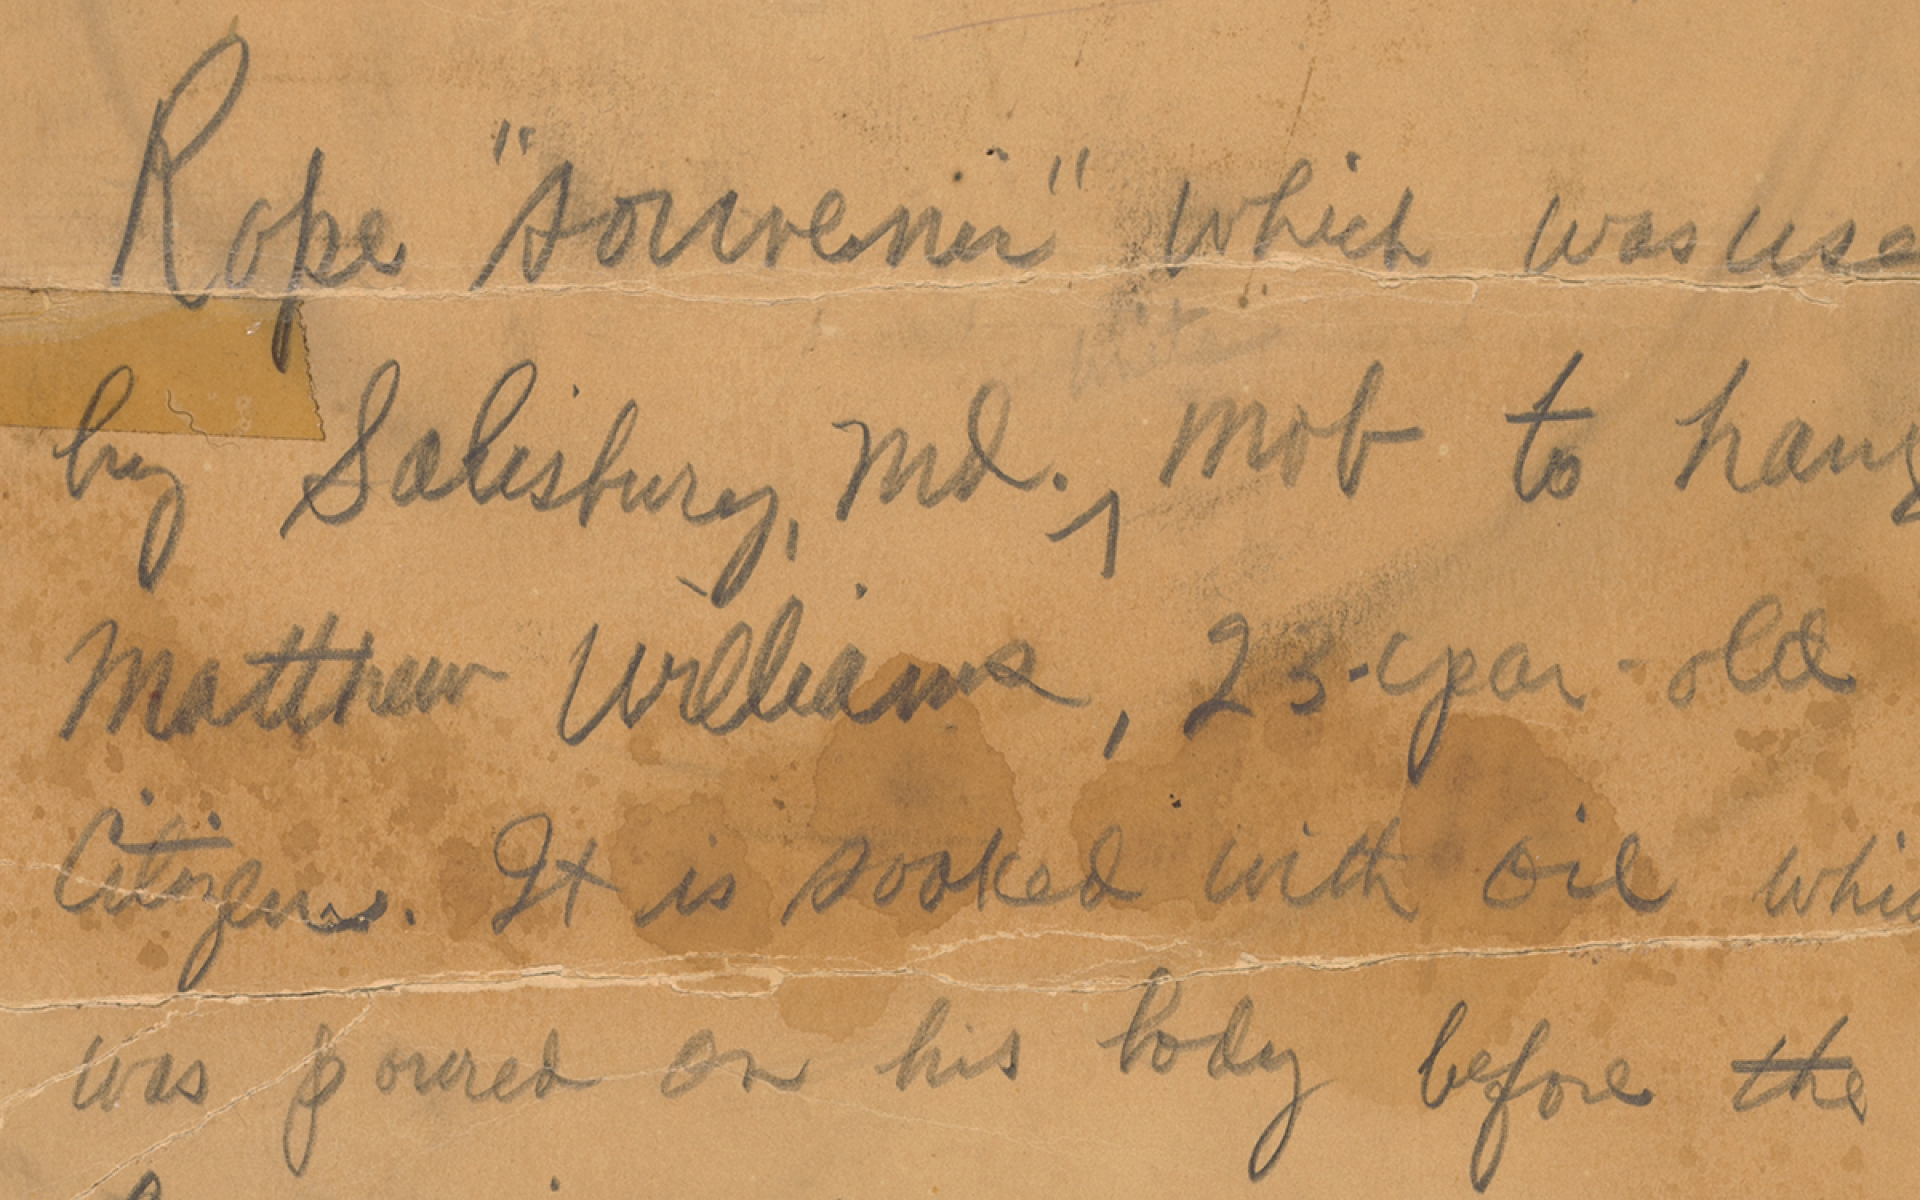 Rope "souvenir" which was use
white
by Salisbury, Md. ^ mob to hang
Matthew Williams, 23-year-old
Citizen. It is soaked with oil whic
was poured on his body before the